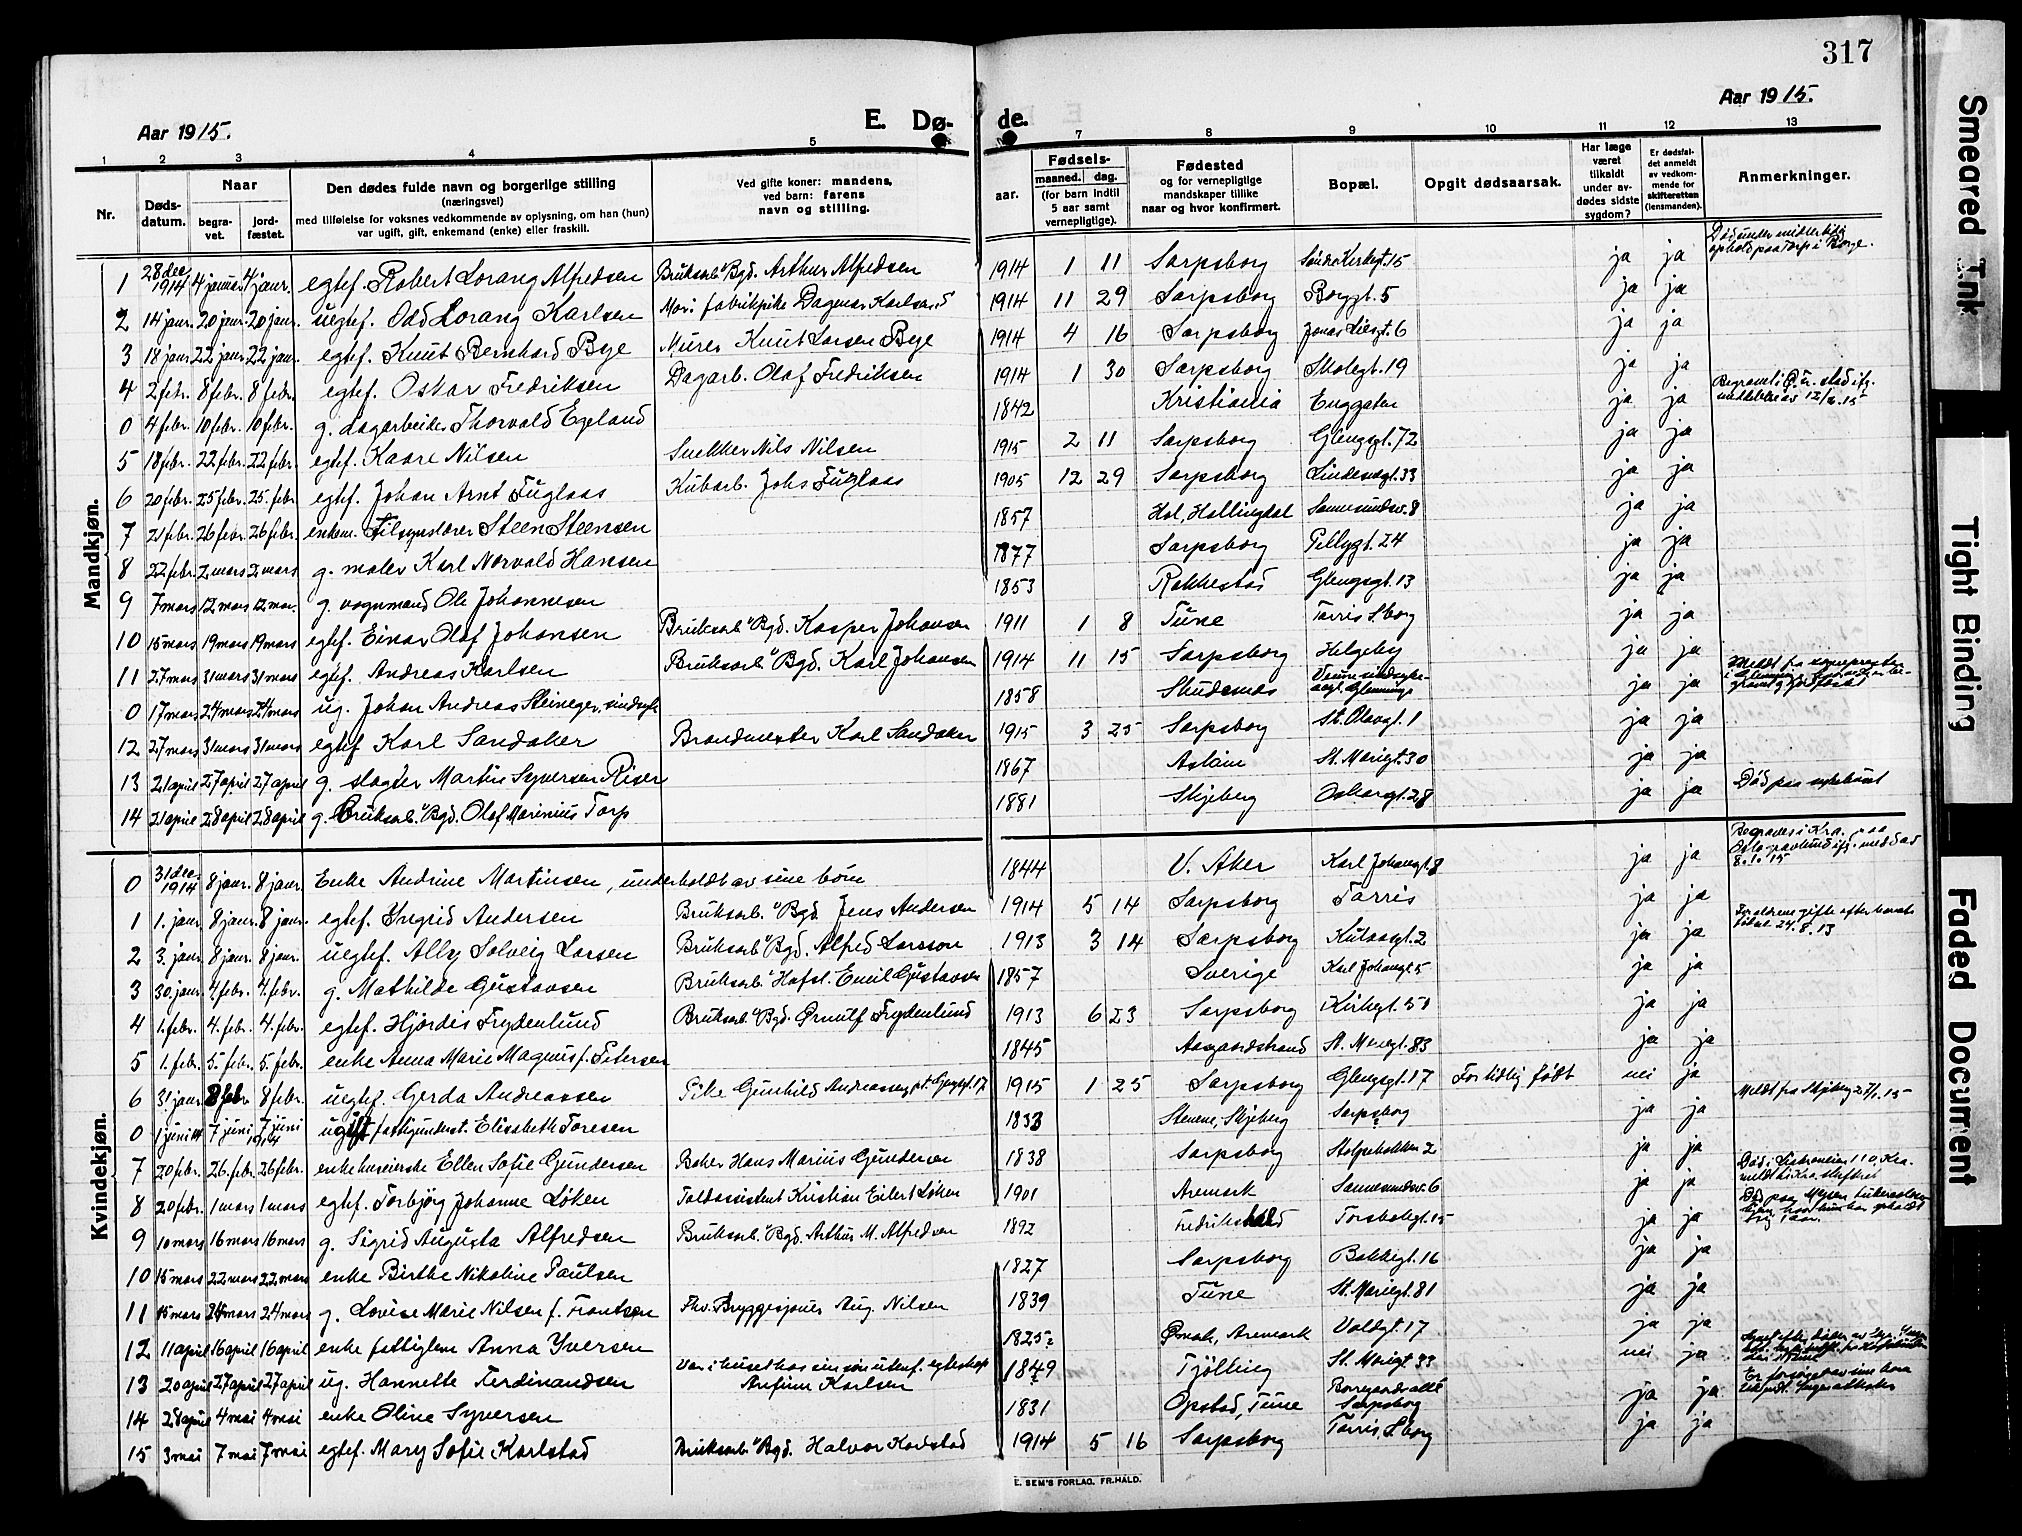 317
Aar 1915.
E. Dø- de.
Aar 1915.
1 2 3 4 5 7 8 9 10 11 12 13
Nr.
Døds-
datum.
Naar
begra-
vet.
jord-
fæstet.
Den dødes fulde navn og borgerlige stilling
(næringsvei)
med tilføielse for voksnes vedkommende av oplysning, om han (hun)
var ugift, gift, enkemand (enke) eller fraskilt.
Ved gifte koner: mandens,
ved barn: farens
navn og stilling.
aar.
Fødsels-
maaned. dag.
(for barn indtil
5 aar samt
vernepligtige).
Fødested
og for vernepligtige
mandskaper tillike
naar og hvor konfirmert.
Bopæl.
Opgit dødsaarsak.
Har læge
været
tilkaldt
under av-
dødes sidste
sygdom?
Er dødsfal-
det anmeldt
av vedkom-
mende for
skifteretten
(lensmanden).
Anmerkninger.
Mandkjøn.
1 28 dec. 1914 4 januar 4 januar. egtef. Robert Lorang Alfredsen Bruksarb. v/Bgd. Arthur Alfredsen 1914 1 11 Sarpsborg Søndre Kirkegt. 15 ja ja Død under midlertidig ophold paa Torp i Borge.
2 14 januar. 20 januar. 20 januar. uegtef. Odd Lorang Karlsen Mor: fabrikpike Dagmar Karlsen 1914 11 29 Sarpsborg Borggt. 5 ja ja
3 18 januar 22 januar 22 januar. egtef. Knut Bernhard Bye Murer Knut Larsen Bye 1914 4 16 Sarpsborg Jonas Liesgt. 6 ja ja
4 2 febr. 8 febr. 8 febr. egtef. Oskar Fredriksen Dagarb. Olaf Fredriksen 1914 1 30 Sarpsborg Skolegt. 19 ja ja
0 4 febr. 10 febr. 10 febr. g. dagarbeider Thorvald Egeland 1842 Kristiania Enggaten ja ja Begravet i Fr.stad ifg. meddelelse 12/2.15
5 18 febr. 22 febr. 22 febr. egtef. Kaare Nilsen Snekker Nils Nilsen 1915 2 11 Sarpsborg Glengsgt. 72 ja ja
6 20 febr. 25 febr. 25. febr egtef. Johan Arnt Fuglaas Kubarb. Johs Fuglaas 1905 12 29 Sarpsborg Lindesgt. 33 ja ja
7 21 febr. 26 febr. 26 febr. enkem. Tilsynsfører Steen Steensen 1857 Hol, Hallingdal Sannesundsv. 8 ja ja
8 22 febr. 2 mars 2 mars g. maler Karl Norvald Hansen 1877 Sarpsborg Pellygt. 24 ja ja
9 7 mars 12 mars 12 mar. g. vognmand Ole Johannesen 1853 Rakkestad Glengsgt. 13 ja ja
10 15 mars 19 mars 19 mars egtef. Einar Olaf Johansen Bruksarb. v/Bgd. Kasper Johansen 1911 1 8 Tune Tarris S.borg ja ja
11 27 mars 31 mars 31 mars egtef. Andreas Karlsen Bruksarb. v/Bgd. Karl Johansen 1914 11 15 Sarpsborg Helgeby ja ja
0 17 mars 24 mars 24 mars ug. Johan Andreas Steineger, sindssyk 1858 Skudesnes Veum sindssyke- Glemminge ja ja Meldt fra sognepresten i Glemminge, begravet og jordfæstet
12 27 mars 31 mars 31 mars egtef Karl Sandaker Brandmester Karl Sandaker 1915 3 25 Sarpsborg St. Olavgt. 1 ja ja
13 21 april 27 april 27 april g. slagter Martin Syversen Riser 1867 Askim St. Mariegt. 30 ja ja
14 21 april 28 april 28 april g. Bruksarb. v/Bgd. Olaf Marinius Torp 1881 Skjeberg Oskarsgt. 28 ja ja Død paa sykehuset
Kvindekjøn.
0 31 dec. 1914 8 januar. 8 januar. Enke Andrine Martinsen, underholdt av sine børn 1844 V. Aker Karl Johansgt. 8 ja ja Begraves i Kra. paa Oslo gravlund ifg. meddel 8.1.15
1 1. januar 8 januar. 8 januar. egtef. Ingrid Andersen Bruksarb. v/Bgd. Jens Andersen 1914 5 14 Sarpsborg Tarris ja ja
2 3. januar 8 januar. 8 januar. uegtef. Ally Solveig Larsen Bruksarb. v/Bgd. Alfred Larsson 1913 3 14 Sarpsborg Kulaasgt. 2 ja ja Forældrene gifte efter barnets fødsel 24.8.13
3 30. januar. 4. febr. 4. febr. g. Mathilde Gustavsen Bruksarb. v/Hafsl. Emil Gustavsen 1857 Sverige Karl Johansgt. 5 ja ja
4 1. febr. 4. febr. 4. febr. egtef. Hjørdis Frydenlund Bruksarb. v/Bgd. Ørnulf Frydenlund 1913 6 23 Sarpsborg Kirkegt. 50 ja ja
5 1. febr. 5. febr. 5. febr. enke Anna Marie Magnus f. Petersen 1845 Aasgaardstrand St. Mariegt. 83 ja ja
6 31. januar 8 febr 8 febr. uegtef. Gerda Andreassen Pike Gunhild Andreassen, pt. Glengsgt. 17 1915 1 25 Sarpsborg Glengsgt. 17 For tidlig født nei ja
0 1 juni 14 7 juni 7 juni 1914 ugift fattigunderst. Elisabeth Toresen 1833 Stenene, Skjeberg Sarpsborg ja ja Meldt fra Skjeberg 27/1.15
7 20 febr. 26. febr. 26 febr. enke huseierske Ellen Sofie Gundersen Baker Hans Marius Gundersen 1838 Sarpsborg Stolpebakken 2 ja ja
8 20 febr. 1 mars 1 mars egtef. Torbjørg Johanne Løken Toldassistent Kristian Eilert Løken 1901 Aremark Sannesundsv. 6 ja ja
9 10 mars 16 mars 16 mars g. Sigrid Augusta Alfredsen Bruksarb. v/Bgd. Arthur M. Alfredsen 1892 Fredrikshald Torsbekgt. 15 ja ja Død paa Mysen tuberkulosehjem, hvor hun har opholdt sig 1 aar.
10 15 mars 22 mars 22 mars enke Birthe Nikoline Paulsen 1827 Sarpsborg Bakkegt. 16 ja ja
11 15 mars 24 mars 24 mars g. Lovise Marie Nilsen f. Frantsen Fhv. Bryggesjouer Aug. Nilsen 1839 Tune St. Mariegt. 81 ja ja
12 11 april 16 april 16 april enke fattiglem Anna Yversen 1825? Aremark Voldgt. 17 ja ja
13 20 april 27 april 27 april ug. Hannette Ferdinandsen Var i huset hos sin søn utenf. egteskap Anfinn Karlsen 1849 Tjølling St. Mariegt 33 nei ja
14 28 april 4 mai 4 mai enke Oline Syversen 1831 Opstad, Tune Borregaards allé Sarpsborg ja ja
15 3 mai 7 mai 7 mai egtef. Mary Sofie Karlstad Bruksarb. v/Bgd. Halvor Karlstad 1914 5 16 Sarpsborg Tarris, S.borg ja ja
E. SEM'S FORLAG, FR.HALD.
Smeared Ink
Tight Binding
Faded Document